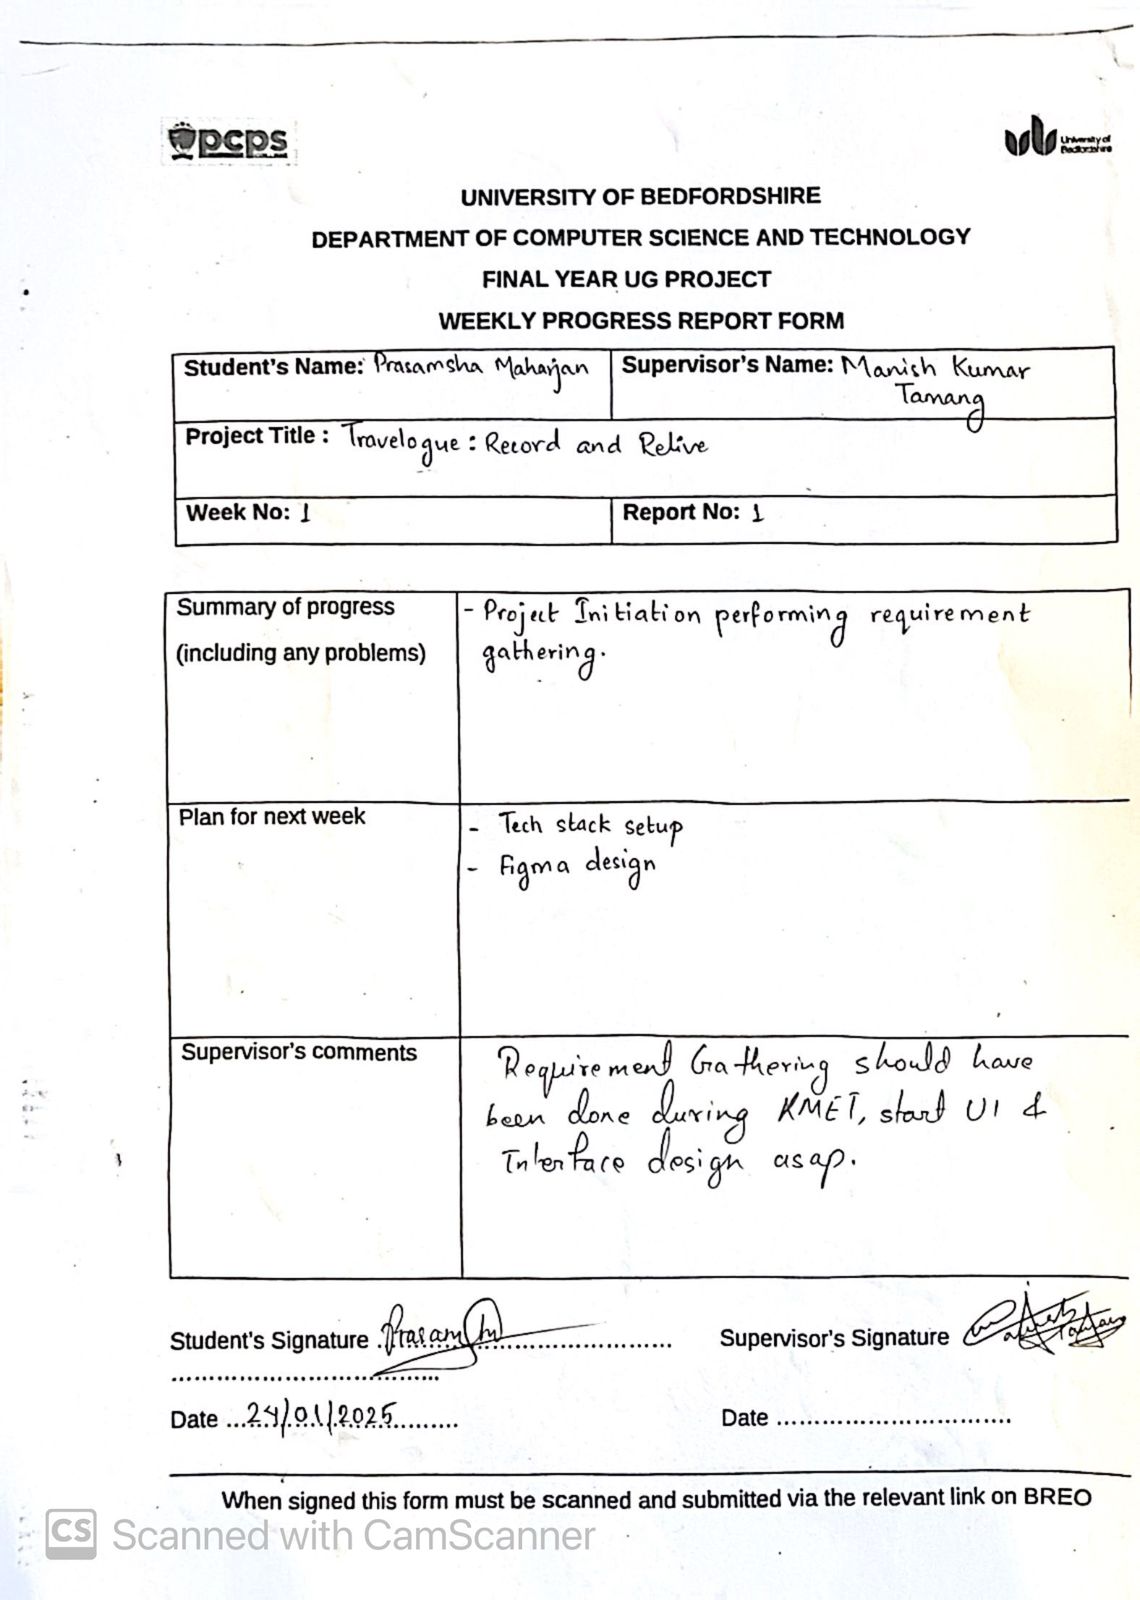 pcps
University of
Bedfordshire
UNIVERSITY OF BEDFORDSHIRE
DEPARTMENT OF COMPUTER SCIENCE AND TECHNOLOGY
FINAL YEAR UG PROJECT
WEEKLY PROGRESS REPORT FORM
Student's Name: Prasamsha Maharjan
Supervisor's Name: Manish Kumar
Tamang
Project Title : Travelogue : Record and Relive
Week No: 1
Report No: 1
Summary of progress
(including any problems)
- Project Initiation performing requirement
gathering.
Plan for next week
- Tech stack setup
- Figma design
Supervisor's comments
Requirement Gathering should have
been done during KMET, start UI &
Interface design asap.
Student's Signature
Supervisor's Signature
Date ...24/01/2025.........
Date ................................
When signed this form must be scanned and submitted via the relevant link on BREO
CS Scanned with CamScanner